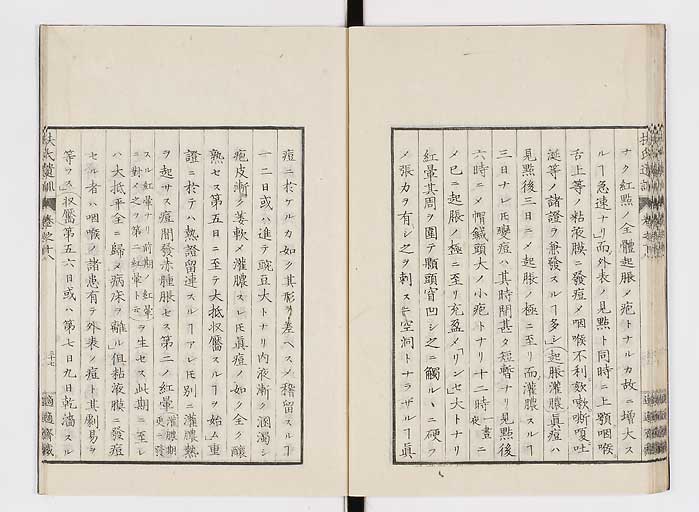 ナク紅點ノ全體起脹メ疱トナルカ故ニ増大ス
ルヿ急速ナリ」而外表ノ見點ト同時ニ上顎咽喉
舌上等ノ粘液膜ニ發痘メ咽喉不利欬嗽嘶嗄吐
涎等ノ諸證ヲ兼發スルヿ多シ」起脹灌膿眞痘ハ
見點後三日ニメ起脹ノ極ニ至リ而灌膿スルヿ
三日ナレ𪜈變痘ハ其時間甚タ短暫ナリ見點後
六時ニメ帽鍼頭大ノ小疱トナリ十二時一晝ニ夜
メ已ニ起脹ノ極ニ至リ充盈メ「リンセ」大トナリ
紅暈其周ヲ圍テ顆頭窅凹シ之ニ觸ルヽニ硬フ
メ張力ヲ有シ之ヲ刺スニ空洞トナラザルヿ眞
痘ニ於ケルカ如ク其形ヲ差ヘスメ稽留スルヿ
一二日或ハ進テ豌豆大トナリ内液漸ク溷濁シ
疱皮漸ク萎軟メ灌膿スレ𪜈眞痘ノ如ク全ク釀
熟セス第五日ニ至テ大抵収靨スルヿヲ始ム」重
證ニ於テハ熱證留連スルヿアレ𪜈別ニ灌膿熱
ヲ起サス痘間發赤腫脹セス第二ノ紅暈灌膿期更ニ發
スル紅暈ナリ前期ノ紅暈ニ對メ之ヲ第二紅暈ト云ヲ生セス此期ニ至レ
ハ大抵平全ニ歸メ病床ヲ離ル」但粘液膜ニ發痘
セル者ハ咽喉ノ諸患有テ外表ノ痘ト其劇易ヲ
等フス」収靨第五六日或ハ第七日九日乾濇スル
扶氏遺訓 卷
適適齋藏